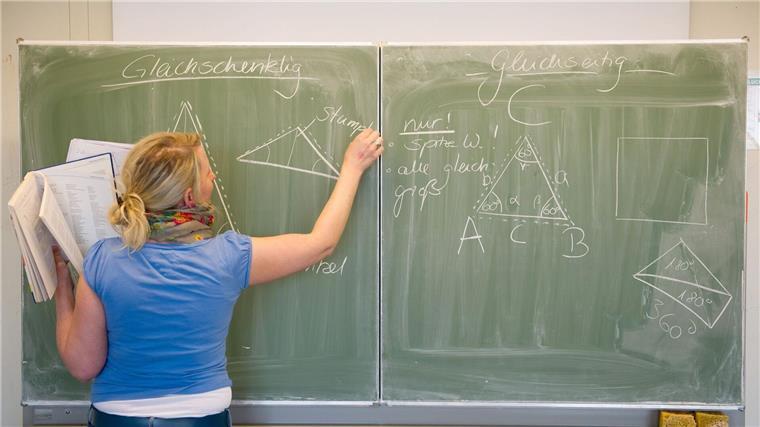 Gleichschenklig
stumpf
Gleichseitig
nur!
• spitze W.!
• alle gleich
groß
C
60°
γ
b
a
60°
α
β
60°
A
c
B
180°
180°
360°